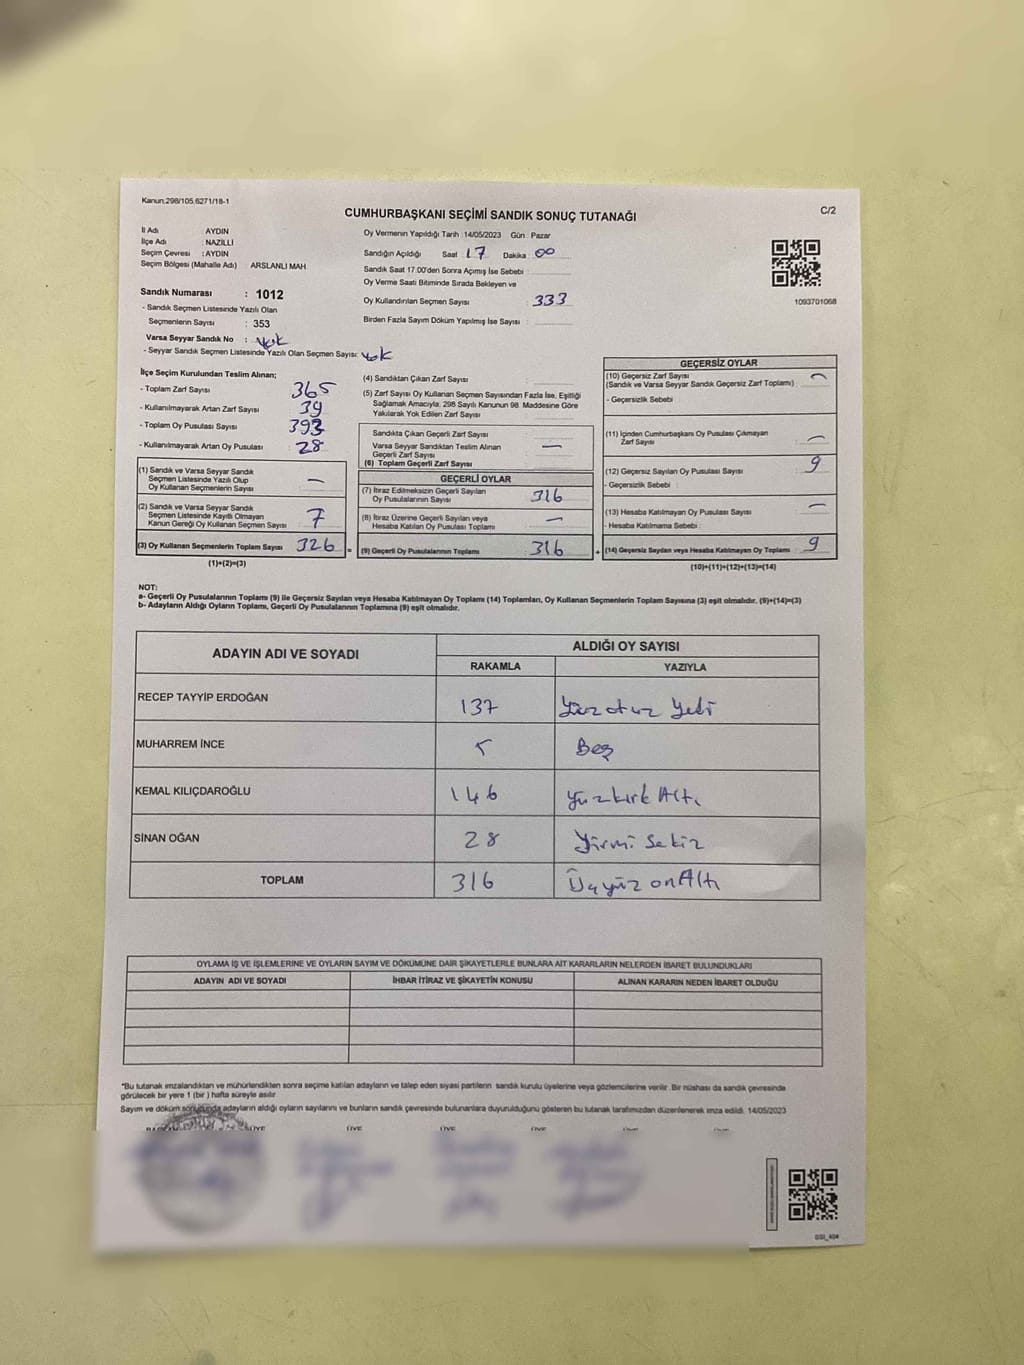 Kanun:298/105,6271/18-1
CUMHURBAŞKANI SEÇİMİ SANDIK SONUÇ TUTANAĞI
C/2
İl Adı : AYDIN
İlçe Adı : NAZİLLİ
Seçim Çevresi : AYDIN
Seçim Bölgesi (Mahalle Adı) : ARSLANLI MAH
Sandık Numarası : 1012
- Sandık Seçmen Listesinde Yazılı Olan
Seçmenlerin Sayısı : 353
Varsa Seyyar Sandık No : Yok
- Seyyar Sandık Seçmen Listesinde Yazılı Olan Seçmen Sayısı: Yok
Oy Vermenin Yapıldığı Tarih :14/05/2023 Gün : Pazar
Sandığın Açıldığı Saat : 17 Dakika : 00
Sandık Saat 17:00'den Sonra Açımış İse Sebebi :
Oy Verme Saati Bitiminde Sırada Bekleyen ve
Oy Kullandırılan Seçmen Sayısı 333
Birden Fazla Sayım Döküm Yapılmış İse Sayısı :
1093701068
İlçe Seçim Kurulundan Teslim Alınan;
- Toplam Zarf Sayısı 365
- Kullanılmayarak Artan Zarf Sayısı 39
- Toplam Oy Pusulası Sayısı 393
- Kullanılmayarak Artan Oy Pusulası 28
(1) Sandık ve Varsa Seyyar Sandık
Seçmen Listesinde Yazılı Olup
Oy Kullanan Seçmenlerin Sayısı —
(2) Sandık ve Varsa Seyyar Sandık
Seçmen Listesinde Kayıtlı Olmayan
Kanun Gereği Oy Kullanan Seçmen Sayısı 7
(3) Oy Kullanan Seçmenlerin Toplam Sayısı 326 =
(1)+(2)=(3)
(4) Sandıktan Çıkan Zarf Sayısı :
(5) Zarf Sayısı Oy Kullanan Seçmen Sayısından Fazla İse, Eşitliği
Sağlamak Amacıyla, 298 Sayılı Kanunun 98. Maddesine Göre
Yakılarak Yok Edilen Zarf Sayısı :
Sandıkta Çıkan Geçerli Zarf Sayısı
Varsa Seyyar Sandıktan Teslim Alınan
Geçerli Zarf Sayısı —
(6) Toplam Geçerli Zarf Sayısı
GEÇERLİ OYLAR
(7) İtiraz Edilmeksizin Geçerli Sayılan
Oy Pusulalarının Sayısı 316
(8) İtiraz Üzerine Geçerli Sayılan veya
Hesaba Katılan Oy Pusulası Toplamı —
(9) Geçerli Oy Pusulalarının Toplamı 316 +
GEÇERSİZ OYLAR
(10) Geçersiz Zarf Sayısı
(Sandık ve Varsa Seyyar Sandık Geçersiz Zarf Toplamı) : —
- Geçersizlik Sebebi :
(11) İçinden Cumhurbaşkanı Oy Pusulası Çıkmayan
Zarf Sayısı —
(12) Geçersiz Sayılan Oy Pusulası Sayısı 9
- Geçersizlik Sebebi :
(13) Hesaba Katılmayan Oy Pusulası Sayısı —
- Hesaba Katılmama Sebebi :
(14) Geçersiz Sayılan veya Hesaba Katılmayan Oy Toplamı : 9
(10)+(11)+(12)+(13)=(14)
NOT:
a- Geçerli Oy Pusulalarının Toplamı (9) ile Geçersiz Sayılan veya Hesaba Katılmayan Oy Toplamı (14) Toplamları, Oy Kullanan Seçmenlerin Toplam Sayısına (3) eşit olmalıdır. (9)+(14)=(3)
b- Adayların Aldığı Oyların Toplamı, Geçerli Oy Pusulalarının Toplamına (9) eşit olmalıdır.
ADAYIN ADI VE SOYADI
ALDIĞI OY SAYISI
RAKAMLA YAZIYLA
RECEP TAYYİP ERDOĞAN 137 Yüzotuz Yedi
MUHARREM İNCE 5 Beş
KEMAL KILIÇDAROĞLU 146 Yüzkırk Altı
SİNAN OĞAN 28 Yirmi Sekiz
TOPLAM 316 Üçyüz onAltı
OYLAMA İŞ VE İŞLEMLERİNE VE OYLARIN SAYIM VE DÖKÜMÜNE DAİR ŞİKAYETLERLE BUNLARA AİT KARARLARIN NELERDEN İBARET BULUNDUKLARI
ADAYIN ADI VE SOYADI İHBAR İTİRAZ VE ŞİKAYETİN KONUSU ALINAN KARARIN NEDEN İBARET OLDUĞU
*Bu tutanak imzalandıktan ve mühürlendikten sonra seçime katılan adayların ve talep eden siyasi partilerin sandık kurulu üyelerine veya gözlemcilerine verilir. Bir nüshası da sandık çevresinde
görülecek bir yere 1 (bir ) hafta süreyle asılır.
Sayım ve döküm sonucunda adayların aldığı oyların sayılarını ve bunların sandık çevresinde bulunanlara duyurulduğunu gösteren bu tutanak tarafımızdan düzenlenerek imza edildi. 14/05/2023
ÜYE ÜYE ÜYE ÜYE ÜYE ÜYE